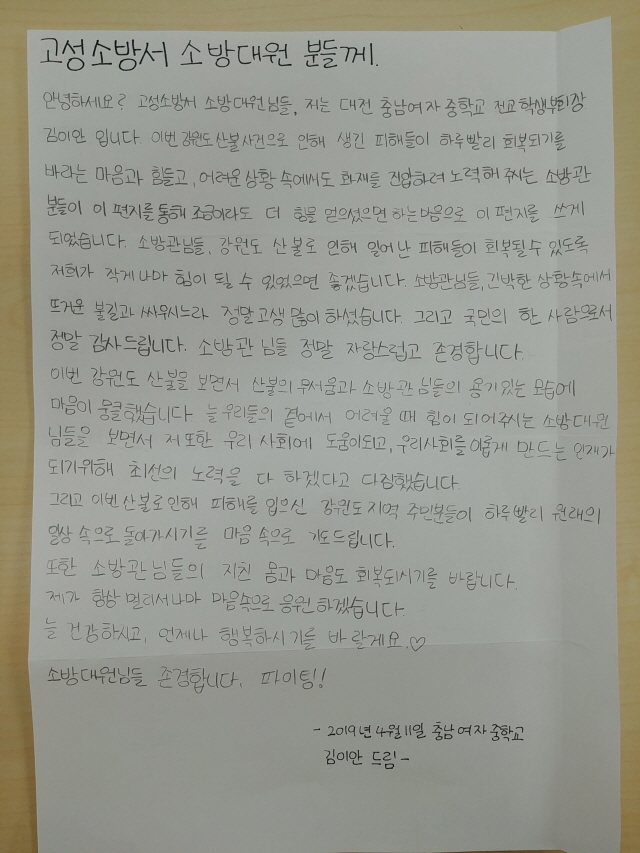 고성소방서 소방대원 분들께.
안녕하세요? 고성소방서 소방대원님들, 저는 대전 충남여자 중학교 전교 학생부회장
김이안 입니다. 이번 강원도 산불 사건으로 인해 생긴 피해들이 하루빨리 회복되기를
바라는 마음과 힘들고, 어려운 상황 속에서도 화재를 진압하려 노력해 주시는 소방관
분들이 이 편지를 통해 조금이라도 더 힘을 얻으셨으면 하는 마음으로 이 편지를 쓰게
되었습니다. 소방관님들, 강원도 산불로 인해 일어난 피해들이 회복될 수 있도록
저희가 작게나마 힘이 될 수 있었으면 좋겠습니다. 소방관님들, 긴박한 상황속에서
뜨거운 불길과 싸우시느라 정말 고생 많이 하셨습니다. 그리고 국민의 한 사람으로서
정말 감사드립니다. 소방관님들 정말 자랑스럽고 존경합니다.
이번 강원도 산불을 보면서 산불의 무서움과 소방관님들의 용기있는 모습에
마음이 뭉클했습니다. 늘 우리들의 곁에서 어려울 때 힘이 되어주시는 소방대원
님들을 보면서 저 또한 우리 사회에 도움이되고, 우리사회를 이롭게 만드는 인재가
되기위해 최선의 노력을 다 하겠다고 다짐했습니다.
그리고 이번 산불로 인해 피해를 입으신 강원도 지역 주민분들이 하루빨리 원래의
일상 속으로 돌아가시기를 마음 속으로 기도드립니다.
또한 소방관님들의 지친 몸과 마음도 회복되시기를 바랍니다.
제가 항상 멀리서나마 마음속으로 응원하겠습니다.
늘 건강하시고, 언제나 행복하시기를 바랄게요.♡
소방대원님들 존경합니다. 파이팅!
- 2019년 4월 11일 충남여자 중학교
김이안 드림 -